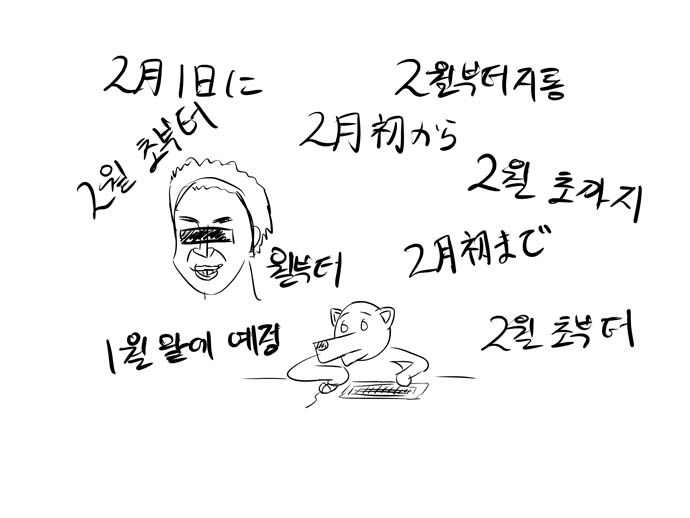 2月1日に
2월부터지롱
2월 초부터
2月初から
2월 초까지
월부터
2月初まで
1월 말에 예정
2월 초부터